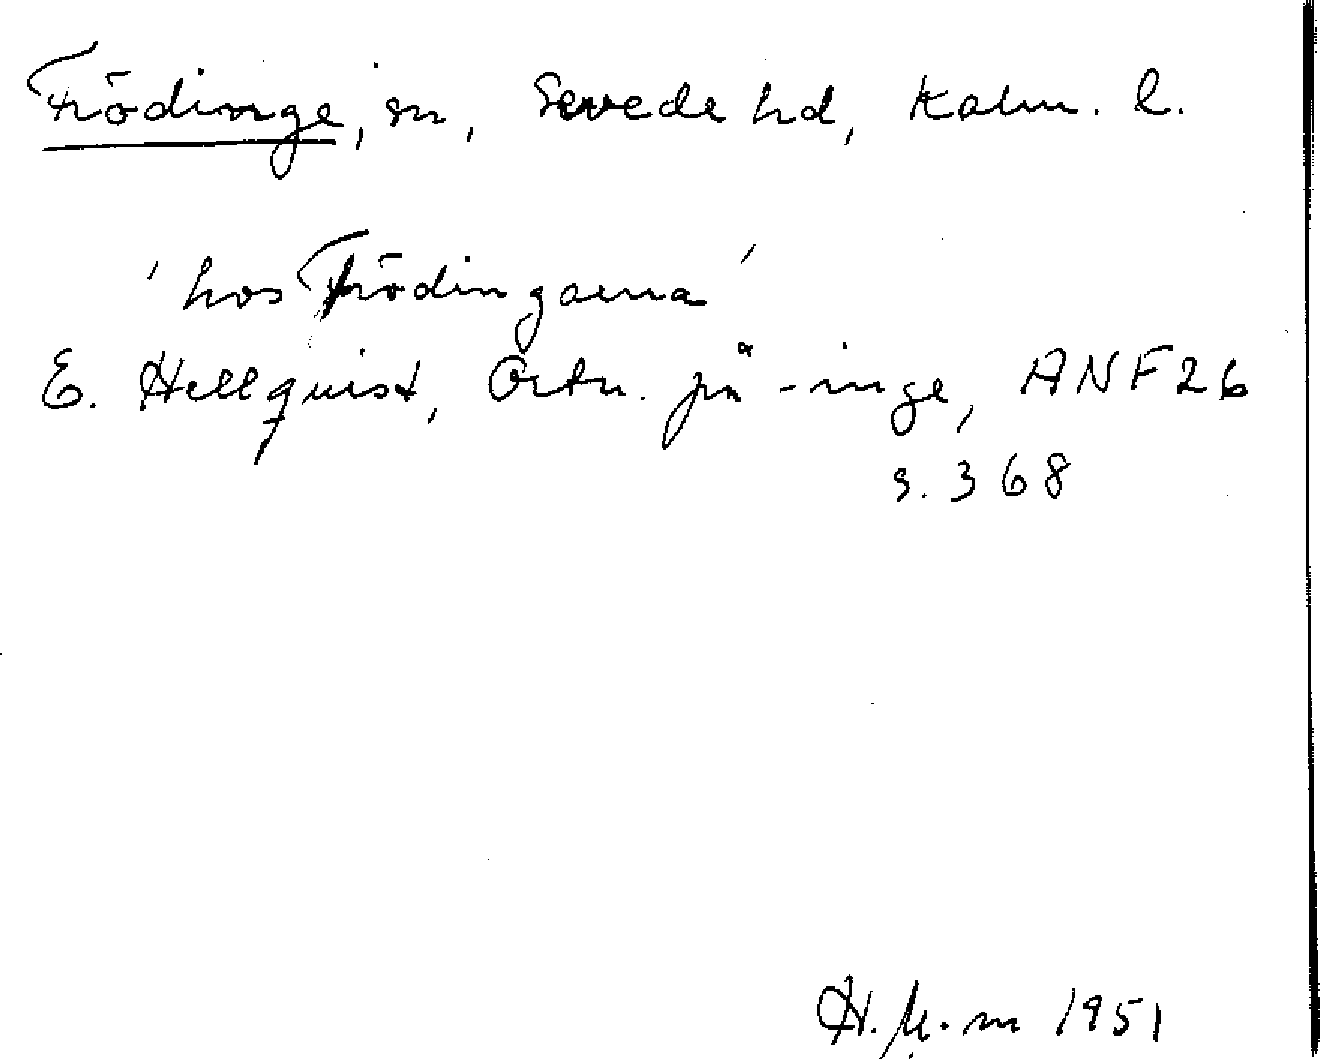 Frödinge, sn, Sevede hd, Kalm. l.
'hos Frödingarna'
E. Hellquist, Ortn. på -inge, ANF 26
s. 368
1951